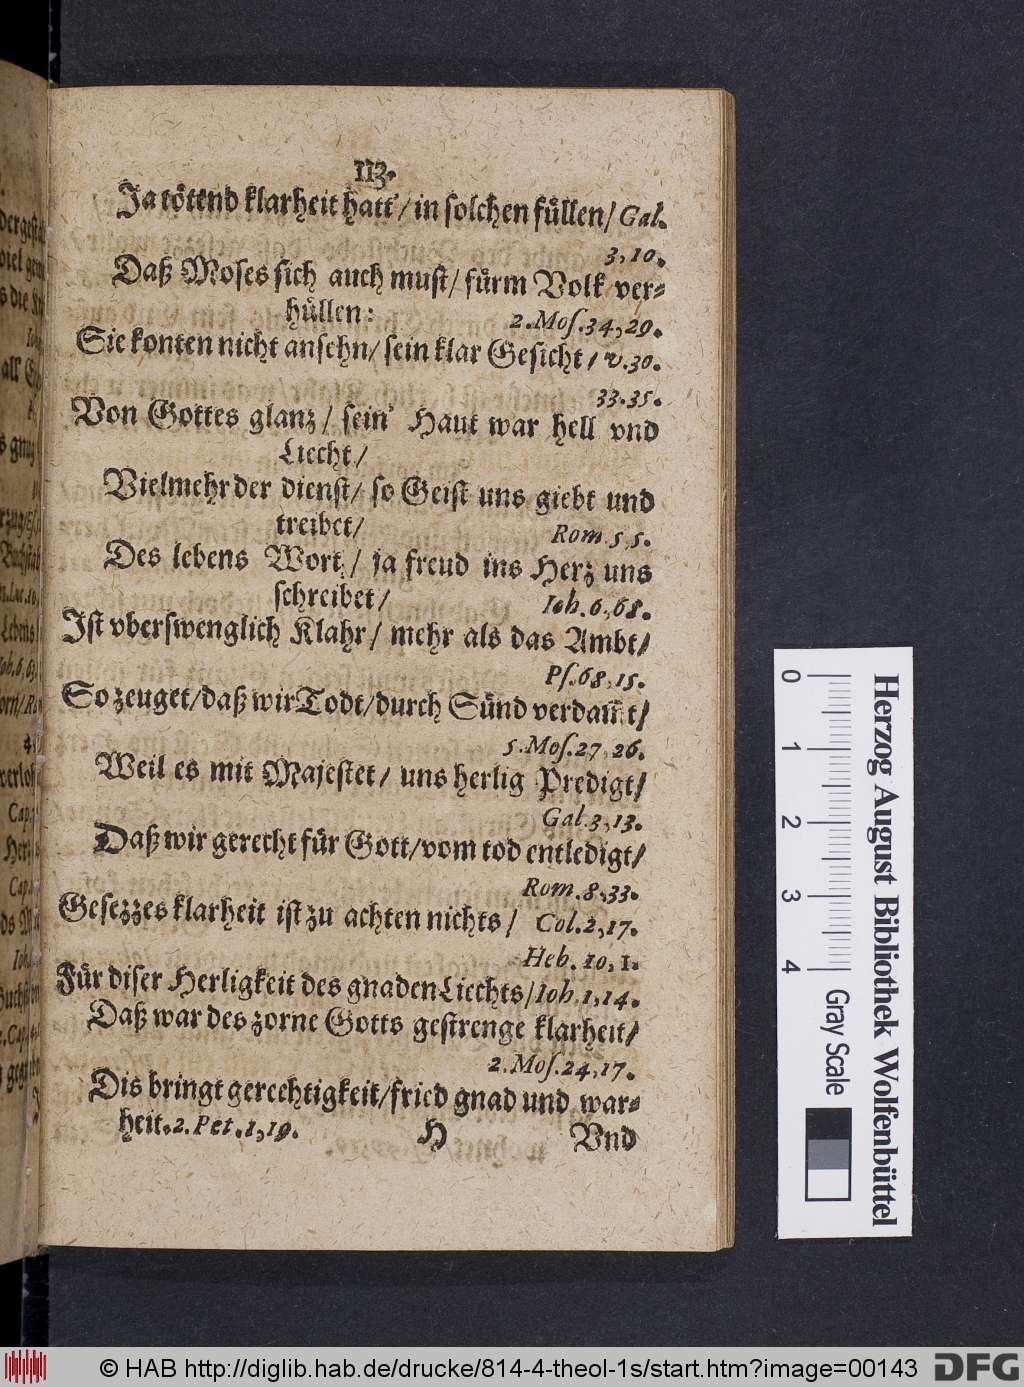 113.
Ja tötend klarheit hatt / in solchen füllen / Gal.
3, 10.
Daß Moses sich auch must / fürm Volk ver-
hüllen: 2. Mos. 34, 29.
Sie konten nicht ansehn / sein klar Gesicht / v. 30.
33. 35.
Von Gottes glanz / sein Haut war hell vnd
Liecht /
Vielmehr der dienst / so Geist uns giebt und
treibet / Rom. 5, 5.
Des lebens Wort / ja freud ins Herz uns
schreibet / Ioh. 6, 68.
Ist vberswenglich Klahr / mehr als das Ambt /
Ps. 68, 15.
So zeuget / daß wir Todt / durch Sünd verdam̃t /
5. Mos. 27, 26.
Weil es mit Majestet / uns herlig Predigt /
Gal. 3, 13.
Daß wir gerecht für Gott / vom tod entledigt /
Rom. 8, 33.
Gesezzes klarheit ist zu achten nichts / Col. 2, 17.
Heb. 10, 1.
Für diser Herligkeit des gnaden Liechts / Ioh. 1, 14.
Daß war des zorne Gotts gestrenge klarheit /
2. Mos. 24, 17.
Dis bringt gerechtigkeit / fried gnad und war-
heit. 2. Pet. 1, 19. H Vnd
0 1 2 3 4
Gray Scale
Herzog August Bibliothek Wolfenbüttel
© HAB http://diglib.hab.de/drucke/814-4-theol-1s/start.htm?image=00143
DFG